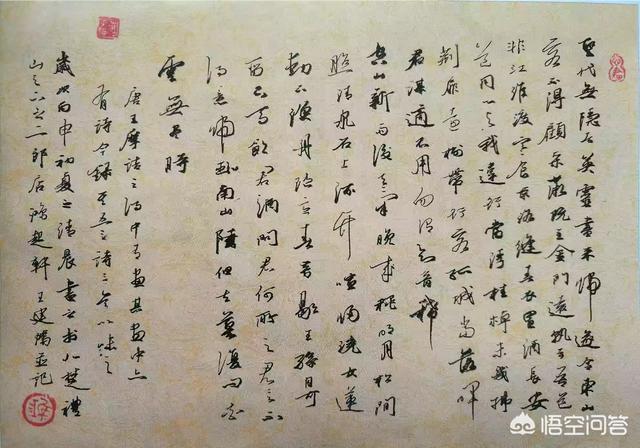 聖代無隱者英靈盡來歸遂令東山
客不得顧采薇既至金門遠孰云吾道
非江淮度寒食京洛縫春衣置酒長安
道同心與我違行當浮桂棹未幾拂
荊扉遠樹帶行客孤城當落暉
吾謀適不用勿謂知音稀
空山新雨後天氣晚來秋明月松間
照清泉石上流竹喧歸浣女蓮
動下漁舟隨意春芳歇王孫自可
留下馬飲君酒問君何所之君言不
得意歸臥南山陲但去莫復問白
雲無盡時
唐王摩詰之詩中有畫其畫中亦
有詩今錄其五言詩三首以
歲次丙申初夏之清晨書
山之 居 軒王建鴻並記
悟空问答